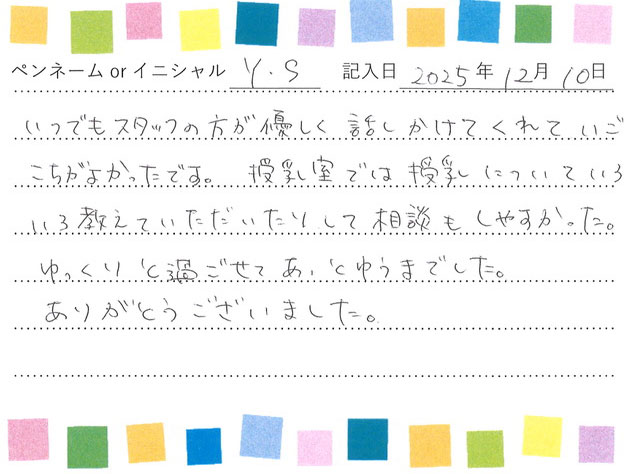 ペンネーム or イニシャル Y.S 記入日 2025年12月10日
いつでもスタッフの方が優しく話しかけてくれていご
こちがよかったです。授乳室では授乳についていろ
いろ教えていただいたりして相談もしやすかった。
ゆっくりと過ごせてあっとゆうまでした。
ありがとうございました。